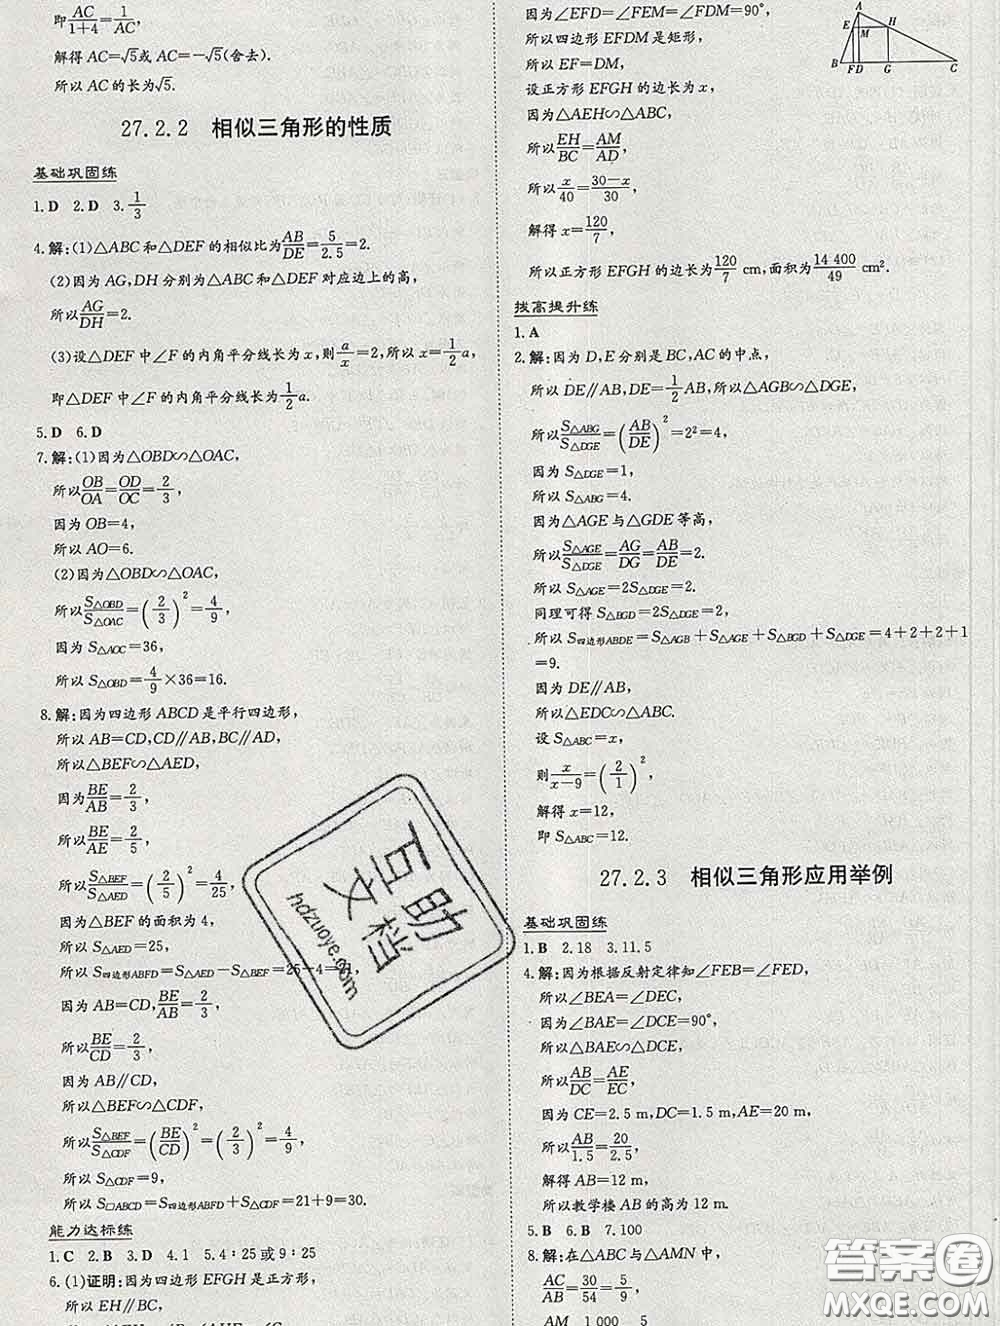 即AC/(1+4)=1/AC,
解得 AC=√5或 AC=-√5(舍去).
所以 AC 的长为√5.
27.2.2 相似三角形的性质
基础巩固练
1.D 2.D 3.1/3
4.解:(1)△ABC 和△DEF 的相似比为AB/DE=5/2.5=2.
(2)因为 AG,DH 分别为△ABC 和△DEF 对应边上的高,
所以AG/DH=2.
(3)设△DEF 中∠F 的内角平分线长为 x,则a/x=2,所以 x=1/2a,
即△DEF 中∠F 的内角平分线长为1/2a.
5.D 6.D
7.解:(1)因为△OBD∽△OAC,
所以OB/OA=OD/OC=2/3,
因为 OB=4,
所以 AO=6.
(2)因为△OBD∽△OAC,
所以S△OBD/S△OAC=(2/3)²=4/9,
因为 S△AOC=36,
所以 S△OBD=4/9×36=16.
8.解:因为四边形 ABCD 是平行四边形,
所以 AB=CD,CD∥AB,BC∥AD,
所以△BEF∽△AED,
因为BE/AB=2/3,
所以BE/AE=2/5,
所以S△BEF/S△AED=(2/5)²=4/25,
因为△BEF 的面积为 4,
所以 S△AED=25,
所以 S四边形ABFD=S△AED-S△BEF=25-4=21,
因为 AB=CD,BE/AB=2/3,
所以BE/CD=2/3,
因为 AB∥CD,
所以△BEF∽△CDF,
所以S△BEF/S△CDF=(BE/CD)²=(2/3)²=4/9,
所以 S△CDF=9,
所以 S□ABCD=S四边形ABFD+S△CDF=21+9=30.
能力达标练
1.C 2.B 3.D 4.1 5.4∶25或9∶25
6.(1)证明:因为四边形 EFGH 是正方形,
所以 EH∥BC,
因为∠EFD=∠FEM=∠FDM=90°,
所以四边形 EFDM 是矩形,
所以 EF=DM,
设正方形 EFGH 的边长为 x,
因为△AEH∽△ABC,
所以EH/BC=AM/AD,
所以x/40=(30-x)/30,
解得 x=120/7,
所以正方形 EFGH 的边长为120/7 cm,面积为14 400/49 cm².
A
E M H
B F D G C
拔高提升练
1.A
2.解:因为 D,E 分别是 BC,AC 的中点,
所以 DE∥AB,DE=1/2AB,所以△AGB∽△DGE,
所以S△ABG/S△DGE=(AB/DE)²=2²=4,
因为 S△DGE=1,
所以 S△ABG=4.
因为△AGE 与△GDE 等高,
所以S△AGE/S△DGE=AG/DG=AB/DE=2.
所以 S△AGE=2S△DGE=2.
同理可得 S△BGD=2S△DGE=2,
所以 S四边形ABDE=S△AGB+S△AGE+S△BGD+S△DGE=4+2+2+1
=9.
因为 DE∥AB,
所以△EDC∽△ABC.
设 S△ABC=x,
则x/(x-9)=(2/1)²,
解得 x=12,
即 S△ABC=12.
27.2.3 相似三角形应用举例
基础巩固练
1.B 2.18 3.11.5
4.解:因为根据反射定律知∠FEB=∠FED,
所以∠BEA=∠DEC,
因为∠BAE=∠DCE=90°,
所以△BAE∽△DCE,
所以AB/DC=AE/EC,
因为 CE=2.5 m,DC=1.5 m,AE=20 m,
所以AB/1.5=20/2.5,
解得 AB=12 m,
所以教学楼 AB 的高为 12 m.
5.B 6.B 7.100
8.解:在△ABC 与△AMN 中,
AC/AB=30/54=5/9,
AM 1 000 5
互助文档
hdzuoye.com
答案圈
MXQE.COM